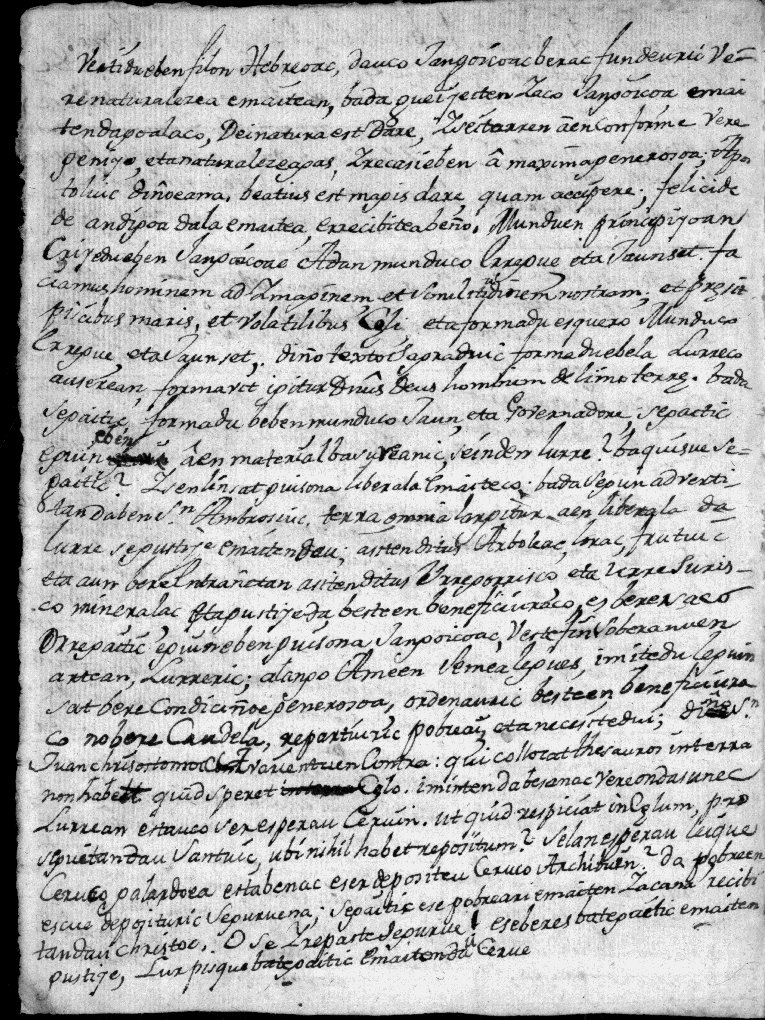 Vertidu eben filon Hebreoac, dauco Jangoicoac berac fundeuric Ve=
re naturalezea emaitean, bada gueijecten zaco Jangoicoa emai
tendagoalaco, Dei natura est dare, Zsetarren aen conforme vere
penijo, eta naturalezeagas, Zrecasi eben â maxima generosoa. Apos
toluic diñoeana, beatius est magis dare, quam accipere; felicida
de andigoa dala emaitea, errecibitea beño. Munduen principijoan
Crijedu eben Jangoicoac Adan munduco Erregue eta Jaunset. fa
ciamus hominem ad Zmaginem et similitudinem nostram; et presit
piscibus maris, et volatilibus Celi eta formadu esquero Munduco
Erregue, eta Jaunset, diño texto Sagraduic formadu ebela Lurreco
autserean, formavit igitur Dnus Deus hominem de limo terre. bada
sepaitic formadu beben munduco Jaun, eta Governadore, sepaitic
eguin eben âen material basureanic, seinden lurre? baquisue se=
paitic? Zsen linsat guisona liberala Emaiteco. bada segun adverti
dan daben Sn Ambrosiuc, terra omnia largitur aen liberala da
lurre segustije emaiten dau; asitenditus Arbolac, lorac, frutuic
eta aun bere Entrañetan asitenditus Urregorrisco eta Urre suris=
co mineralac eta gustije da besteen beneficiuraco, es bereraco
Orregaitic eguin eben guisona Jangoicoac, Veste fin soberanuen
artean, Lurreric; alango Ameen semea leguez, imitedu leguin
sat bere condiciñoe generosoa, ordenauric besteen beneficiura
co no bere Caudela, repartiuric pobreai, eta necesitedui; diñ Sn
Juan chrisostomoc avarientuen contra: qui collocat thesauros in terra
non habet quid speret Celo. iminten dabesanac vere ondasunec
Lurrean estauco ser esperau Ceruin. ut quid respiciat in Celum, pro
segueitandau Santuic, ubi nihil habet repositum? selan esperau leique
Ceruco palardoea estabenac eser depositeu Ceruco Archibuen? da pobreen
escue deposituric seguruena; sepaitic ese pobreari emaiten zacana recibi
tandau christoc. O se Zrepaste segurue! ese beres batepaitic emaiten
gustije, Lur pisque bategaitic Emaitenda Cerue